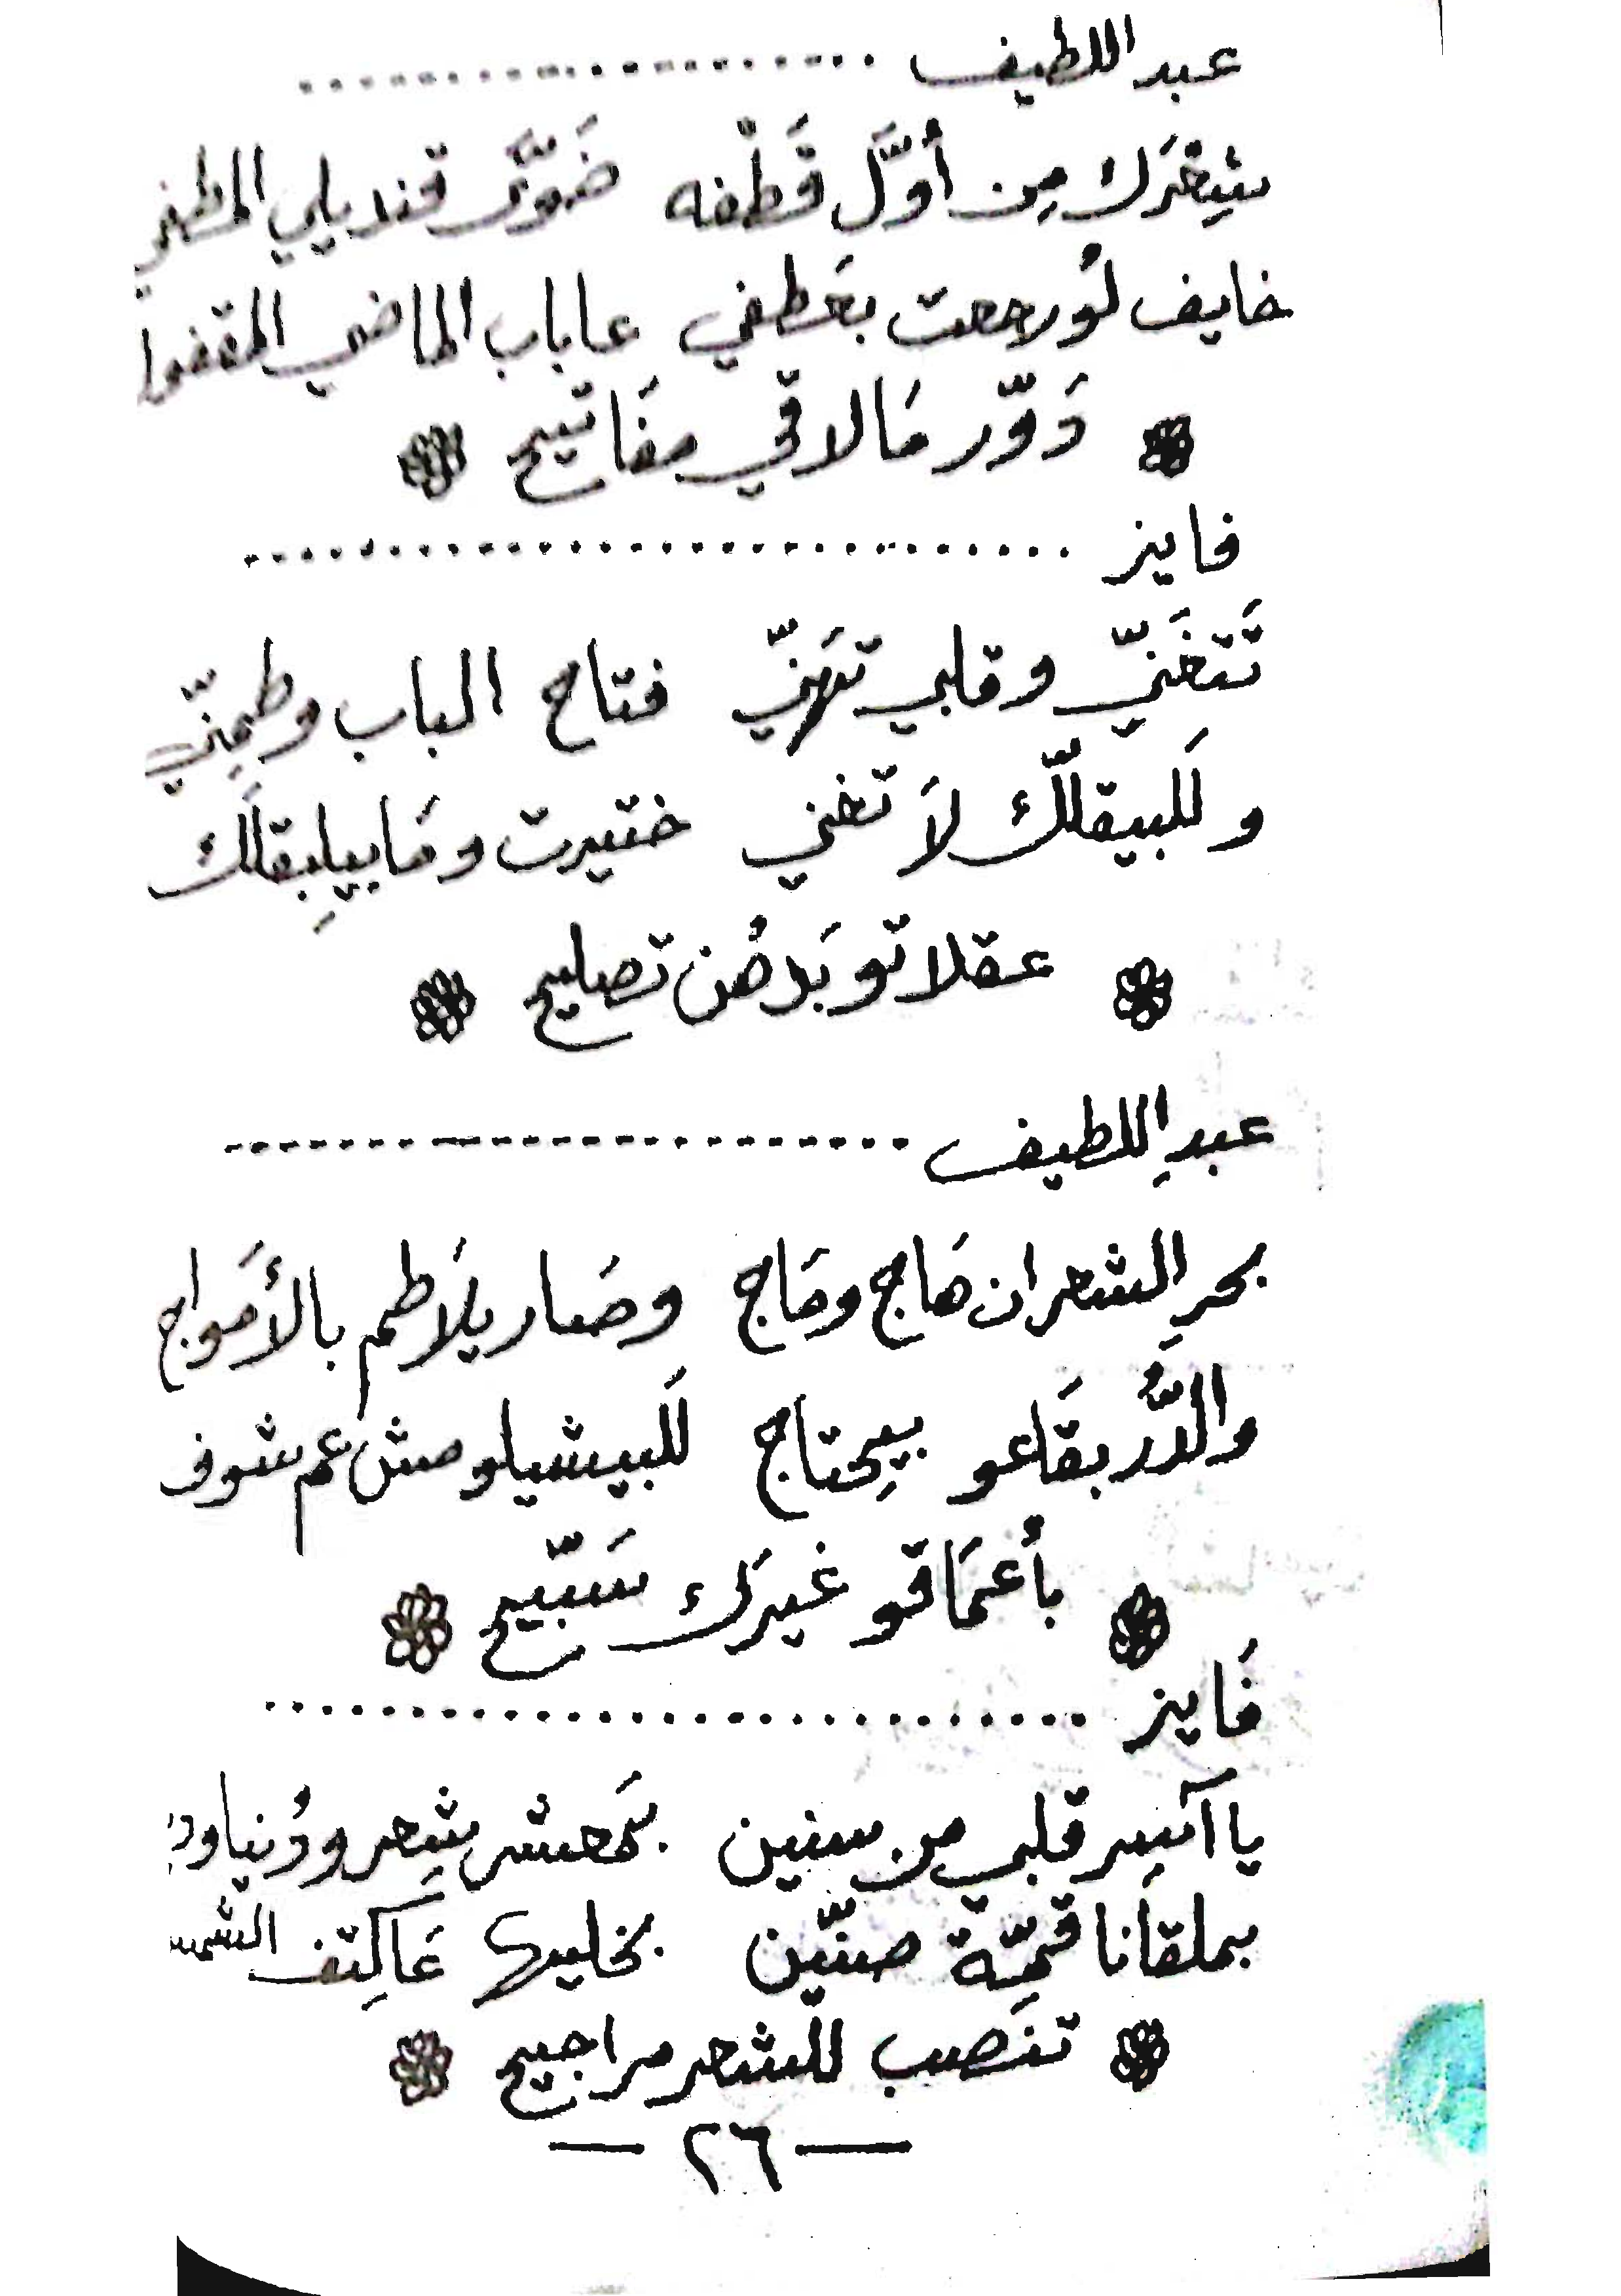 عبد اللطيف ....................
شِعْرَك مِن أوَّل قَطْفه ضَوَّى قنديلي المطفي
خايف لَو رجعت بعَطفي عاباب الماضي المقفول
دَوّر مَا لاقي مفَاتيح
فايز ..............................
تَتغَنّي وقلبي تهَنّي فتاح الباب وطمِنّي
ولَلبيقلّك لاَ تغني ختيرت ومَا بيلِبقلَك
عقلاتو بَدهُن تصليح
عبدِ اللطيف ........................
بحرِ الشعر ان هَاج ومَاج وصَار يلَاطم بالأمَواج
والدُّر بقَاعو بيِحتاج لَلبيشيلو مش عم شوف
بأعمَاقو غيرَك سَبّيح
فَايز ..............................
يا آسِر قلبي من سنين بمَحشر شِعر ودُنيا
بملقانا قمِّة صنّين بخليها عَاكِتف الشمس
تنصب للشعر مراجيح
— ٢٦ —